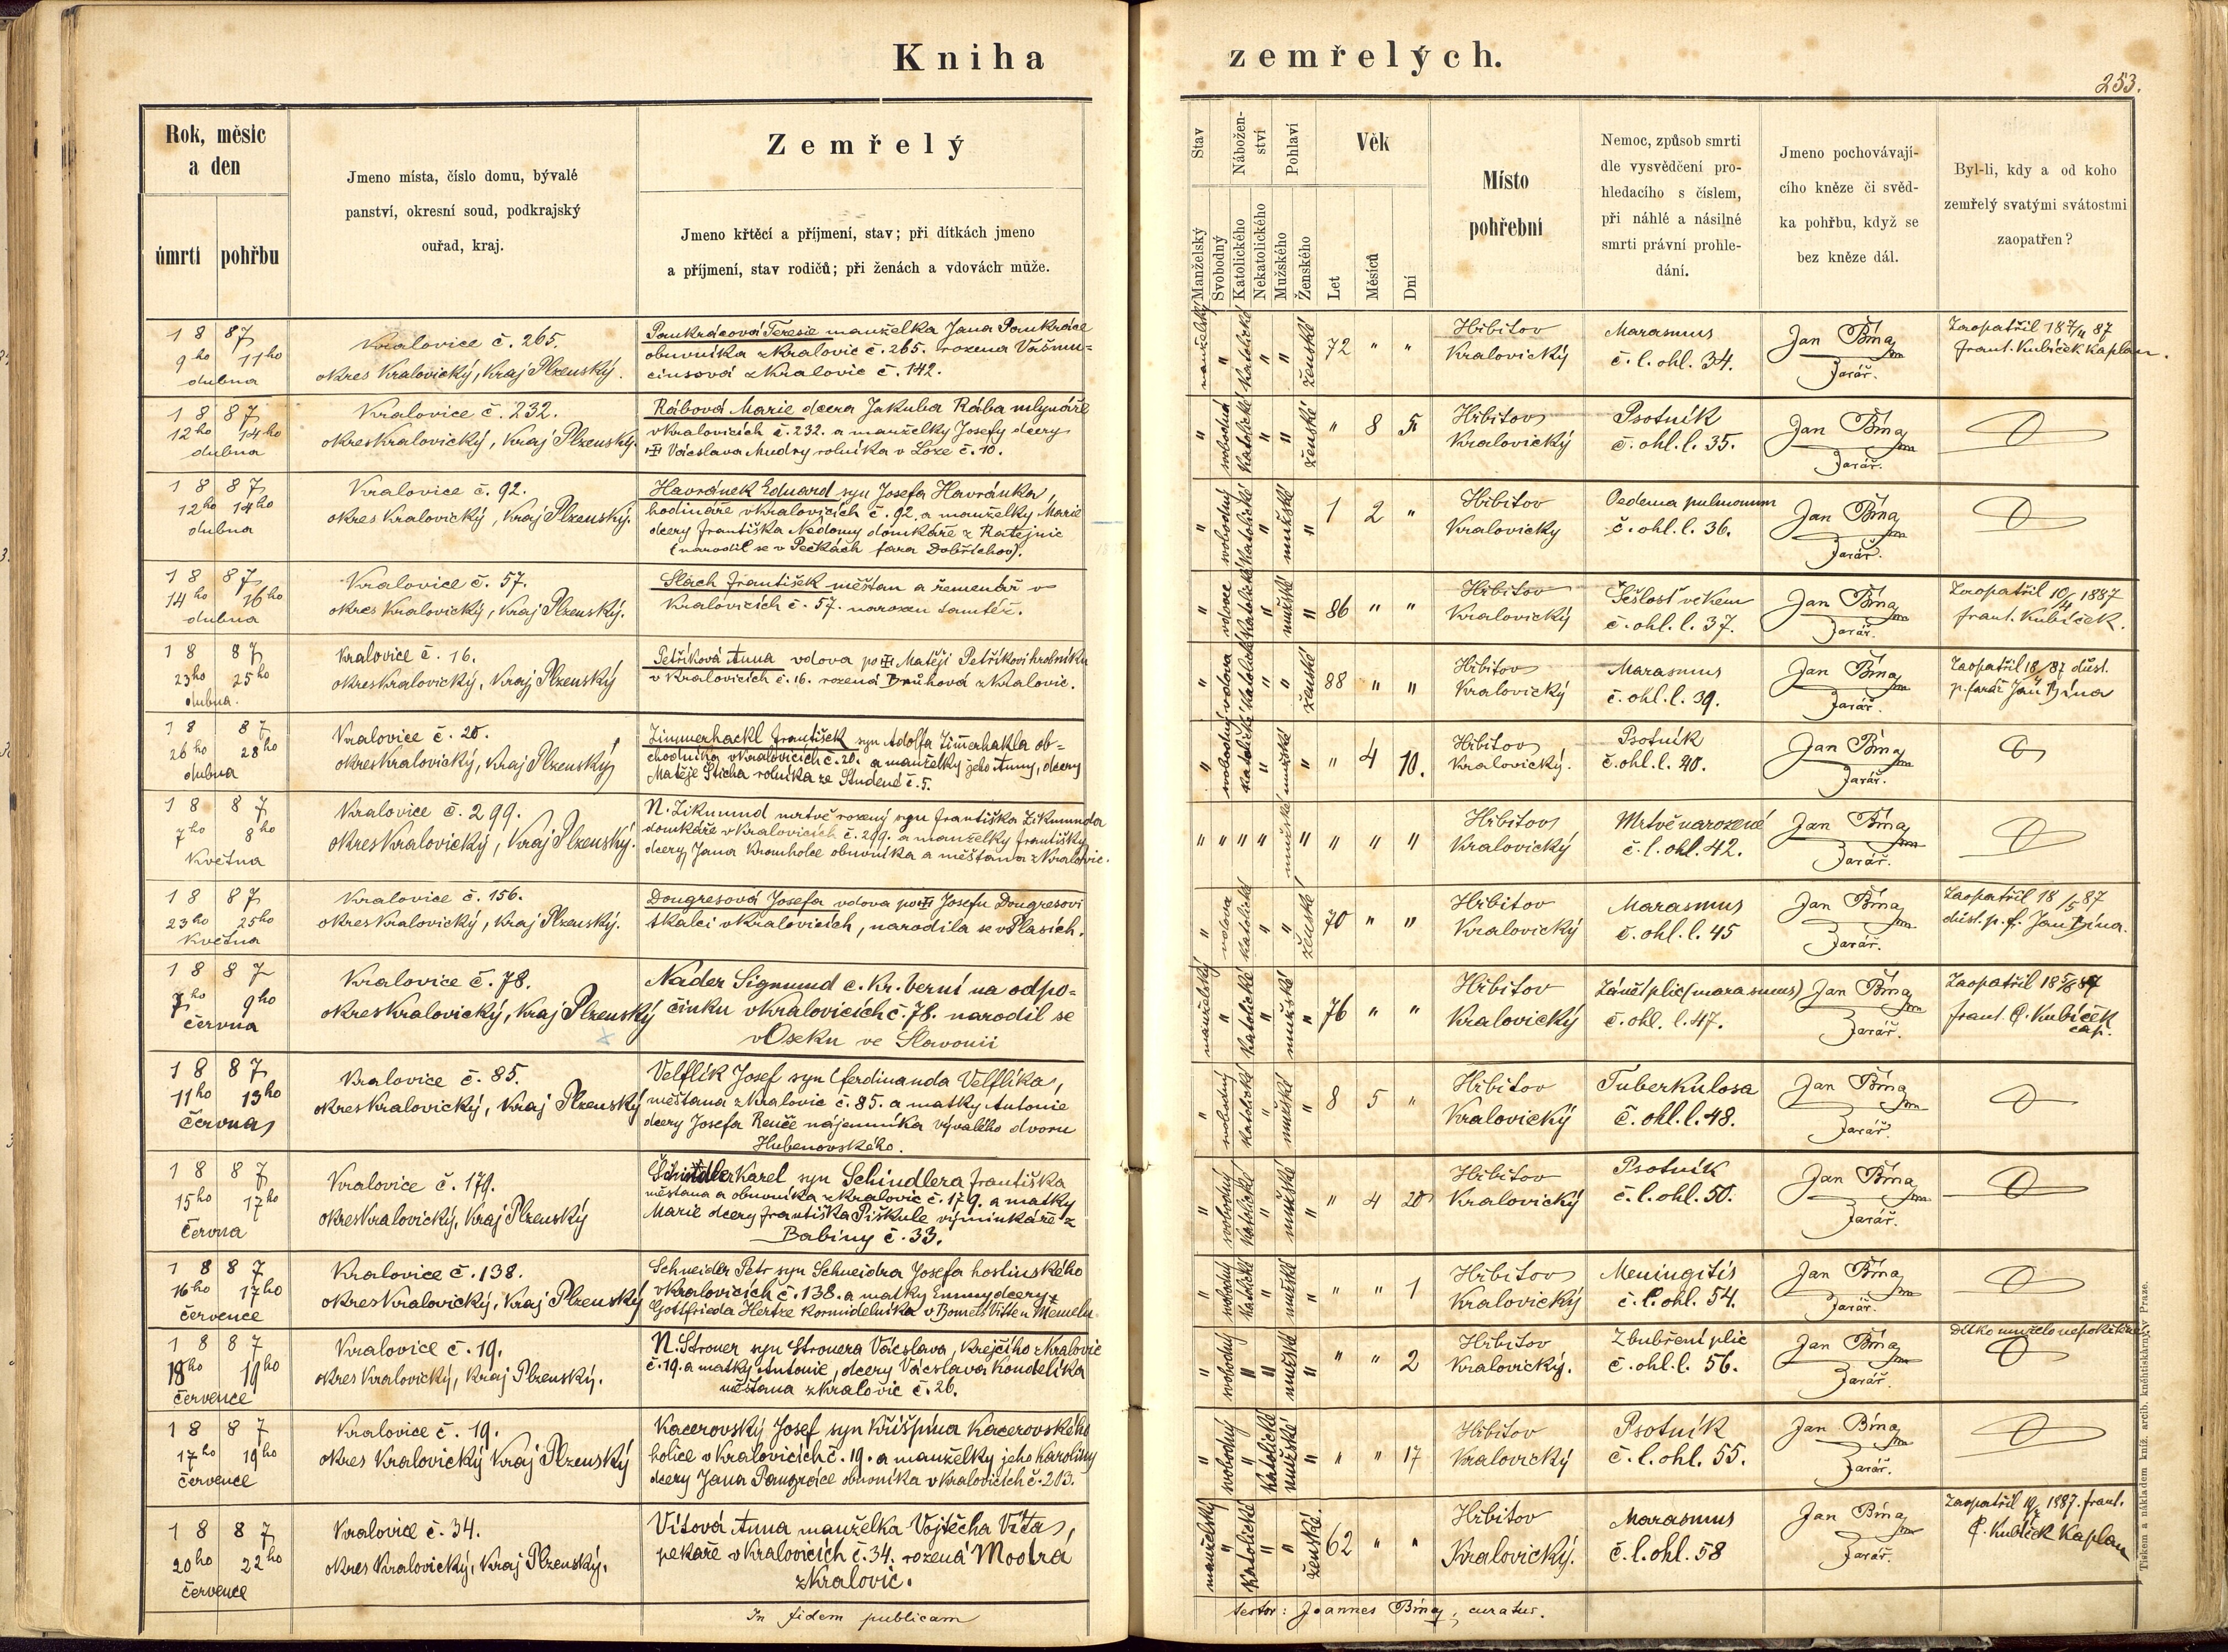 Kniha zemřelých.
253.
Rok, měsíc a den
úmrtí
pohřbu
Jmeno místa, číslo domu, bývalé
panství, okresní soud, podkrajský
ouřad, kraj.
Zemřelý
Jmeno křtěcí a příjmení, stav; při dítkách jmeno
a příjmení, stav rodičů; při ženách a vdovách muže.
Stav
Manželský
Svobodný
Nábožen-
ství
Katolického
Nekatolického
Pohlaví
Mužského
Ženského
Věk
Let
Měsíců
Dní
Místo
pohřební
Nemoc, způsob smrti
dle vysvědčení pro-
hledacího s číslem,
při náhlé a násilné
smrti právní prohle-
dání.
Jmeno pochovávají-
cího kněze či svěd-
ka pohřbu, když se
bez kněze dál.
Byl-li, kdy a od koho
zemřelý svatými svátostmi
zaopatřen?
18 87
9ho 11ho
dubna
Kralovice č. 265.
okres Kralovický, Kraj Plzenský.
Pankrácová Terezie manželka Jana Pankráce
obuvníka z Kralovic č. 265. rozena Vašmu=
ciusová z Kralovic č. 142.
manželský " katolické " " ženské 72 " "
Hřbitov
Kralovický
Marasmus
č. l. ohl. 34.
Jan Bína
farář.
Zaopatřil 18 7/4 87
frant. Kubíček kaplan.
18 87
12ho 14ho
dubna
Kralovice č. 232.
okres Kralovický, Kraj Plzenský.
Rábová Marie dcera Jakuba Rába mlynáře
v Kralovicích č. 232. a manželky Josefy dcery
Václava Mudry rolníka v Loze č. 10.
" svobodná katolické " " ženské " 8 5
Hřbitov
Kralovický
Psotník
č. ohl. l. 35.
Jan Bína
farář.
18 87
12ho 14ho
dubna
Kralovice č. 92.
okres Kralovický, Kraj Plzenský.
Havránek Eduard syn Josefa Havránka,
hodináře v Kralovicích č. 92. a manželky Marie
dcery Františka Nedomy domkáře z Ratejnic
(narodil se v Pečkách fara Dobřichov).
" svobodný katolické " mužské " 1 2 "
Hřbitov
Kralovický
Oedema pulmonum
č. ohl. l. 36.
Jan Bína
farář.
18 87
14ho 16ho
dubna
Kralovice č. 57.
okres Kralovický, Kraj Plzenský.
Slach František měšťan a řemenář v
Kralovicích č. 57. narozen tamtéž.
" vdovec katolické " mužské " 86 " "
Hřbitov
Kralovický
Sešlosť věkem
č. ohl. l. 37.
Jan Bína
farář.
Zaopatřil 10/4 1887
frant. Kubíček.
18 87
23ho 25ho
dubna.
Kralovice č. 16.
okres Kralovický, Kraj Plzenský
Petříková Anna vdova po Matěji Petříkovi hrobníku
v Kralovicích č. 16. rozená Brůhová z Kralovic.
" vdova katolické " " ženské 88 " "
Hřbitov
Kralovický
Marasmus
č. ohl. l. 39.
Jan Bína
farář.
Zaopatřil 18 87 důst.
p. farář Jan Bína
18 87
26ho 28ho
dubna
Kralovice č. 20.
okres Kralovický, Kraj Plzenský
Zimmerhackl František syn Adolfa Zimerhakla ob=
chodníka v Kralovicích č. 20. a manželky jeho Anny, dcery
Matěje Sticha rolníka ze Studené č. 5.
" svobodný katolické " mužské " " 4 10.
Hřbitov
Kralovický.
Psotník
č. ohl. l. 40.
Jan Bína
farář.
18 87
7ho 8ho
Května
Kralovice č. 299.
okres Kralovický, Kraj Plzenský.
N. Zikmund mrtvě rozený syn Františka Zikmunda
domkáře v Kralovicích č. 299. a manželky Františky
dcery Jana Kromholce obuvníka a měšťana z Kralovic.
" " " " mužské " " " "
Hřbitov
Kralovický
Mrtvě narozené
č. l. ohl. 42.
Jan Bína
farář.
18 87
23ho 25ho
Května
Kralovice č. 156.
okres Kralovický, Kraj Plzenský.
Dongresová Josefa vdova po Josefu Dongresovi
tkalci v Kralovicích, narodila se v Plasích.
" vdova katolické " " ženské 70 " "
Hřbitov
Kralovický
Marasmus
č. ohl. l. 45
Jan Bína
farář.
Zaopatřil 18 /5 87
důst. p. f. Jan Bína.
18 87
7ho 9ho
června
Kralovice č. 78.
okres Kralovický, Kraj Plzenský
Nader Sigmund c. kr. berní na odpo=
činku v Kralovicích č. 78. narodil se
v Oseku ve Slavonii
manželský " katolické " mužské " 76 " "
Hřbitov
Kralovický
Zánět plic (marasmus)
č. ohl. l. 47.
Jan Bína
farář.
Zaopatřil 18 5/6 87
frant. P. Kubíček
cap.
18 87
11ho 13ho
června
Kralovice č. 85.
okres Kralovický, Kraj Plzenský
Velflík Josef syn Ferdinanda Velflíka,
měšťana z Kralovic č. 85. a matky Antonie
dcery Josefa Renče nájemníka bývalého dvoru
Hubenovského.
" svobodný katolické " mužské " 8 5 "
Hřbitov
Kralovický
Tuberkulosa
č. ohl. l. 48.
Jan Bína
farář.
18 87
15ho 17ho
června
Kralovice č. 179.
okres Kralovický, Kraj Plzenský
Schindler Karel syn Schindlera Františka
měšťana a obuvníka z Kralovic č. 179. a matky
Marie dcery Františka Piškule výminkáře z
Babiny č. 33.
" svobodný katolické " mužské " " 4 20
Hřbitov
Kralovický
Psotník
č. l. ohl. 50.
Jan Bína
farář.
18 87
16ho 17ho
července
Kralovice č. 138.
okres Kralovický, Kraj Plzenský
Schneider Petr syn Schneidra Josefa hostinského
v Kralovicích č. 138. a matky Emmy dcery
Gottfrieda Hertze kormidelníka v Bomels Vitte u Memelu.
" svobodný katolické " mužské " " " 1
Hřbitov
Kralovický
Meningitis
č. l. ohl. 54.
Jan Bína
farář.
18 87
18ho 19ho
července
Kralovice č. 19.
okres Kralovický, Kraj Plzenský.
N. Strouer syn Strouera Václava, krejčího z Kralovic
č. 19. a matky Antonie, dcery Václava Kondelíka
měšťana z Kralovic č. 26.
" svobodný " " mužské " " " 2
Hřbitov
Kralovický.
Zbubření plic
č. ohl. l. 56.
Jan Bína
farář.
dítko umřelo nepokřtěné
18 87
17ho 19ho
července
Kralovice č. 19.
okres Kralovický Kraj Plzenský
Kacerovský Josef syn Křišpína Kacerovského
holiče v Kralovicích č. 19. a manželky jeho Karolíny
dcery Jana Pangráce obuvníka v Kralovicích č. 203.
" svobodný katolické " mužské " " " 17
Hřbitov
Kralovický
Psotník
č. l. ohl. 55.
Jan Bína
farář.
18 87
20ho 22ho
července
Kralovice č. 34.
okres Kralovický, Kraj Plzenský.
Vítová Anna manželka Vojtěcha Víta,
pekaře v Kralovicích č. 34. rozená Modrá
z Kralovic.
manželský " katolické " " ženské. 62 " "
Hřbitov
Kralovický.
Marasmus
č. l. ohl. 58
Jan Bína
farář.
Zaopatřil 1887. frant.
P. Kubíček Kaplan
In fidem publicam
testor: Joannes Bína, curatus.
Tiskem a nákladem kníž. arcib. knéhtiskárny v Praze.